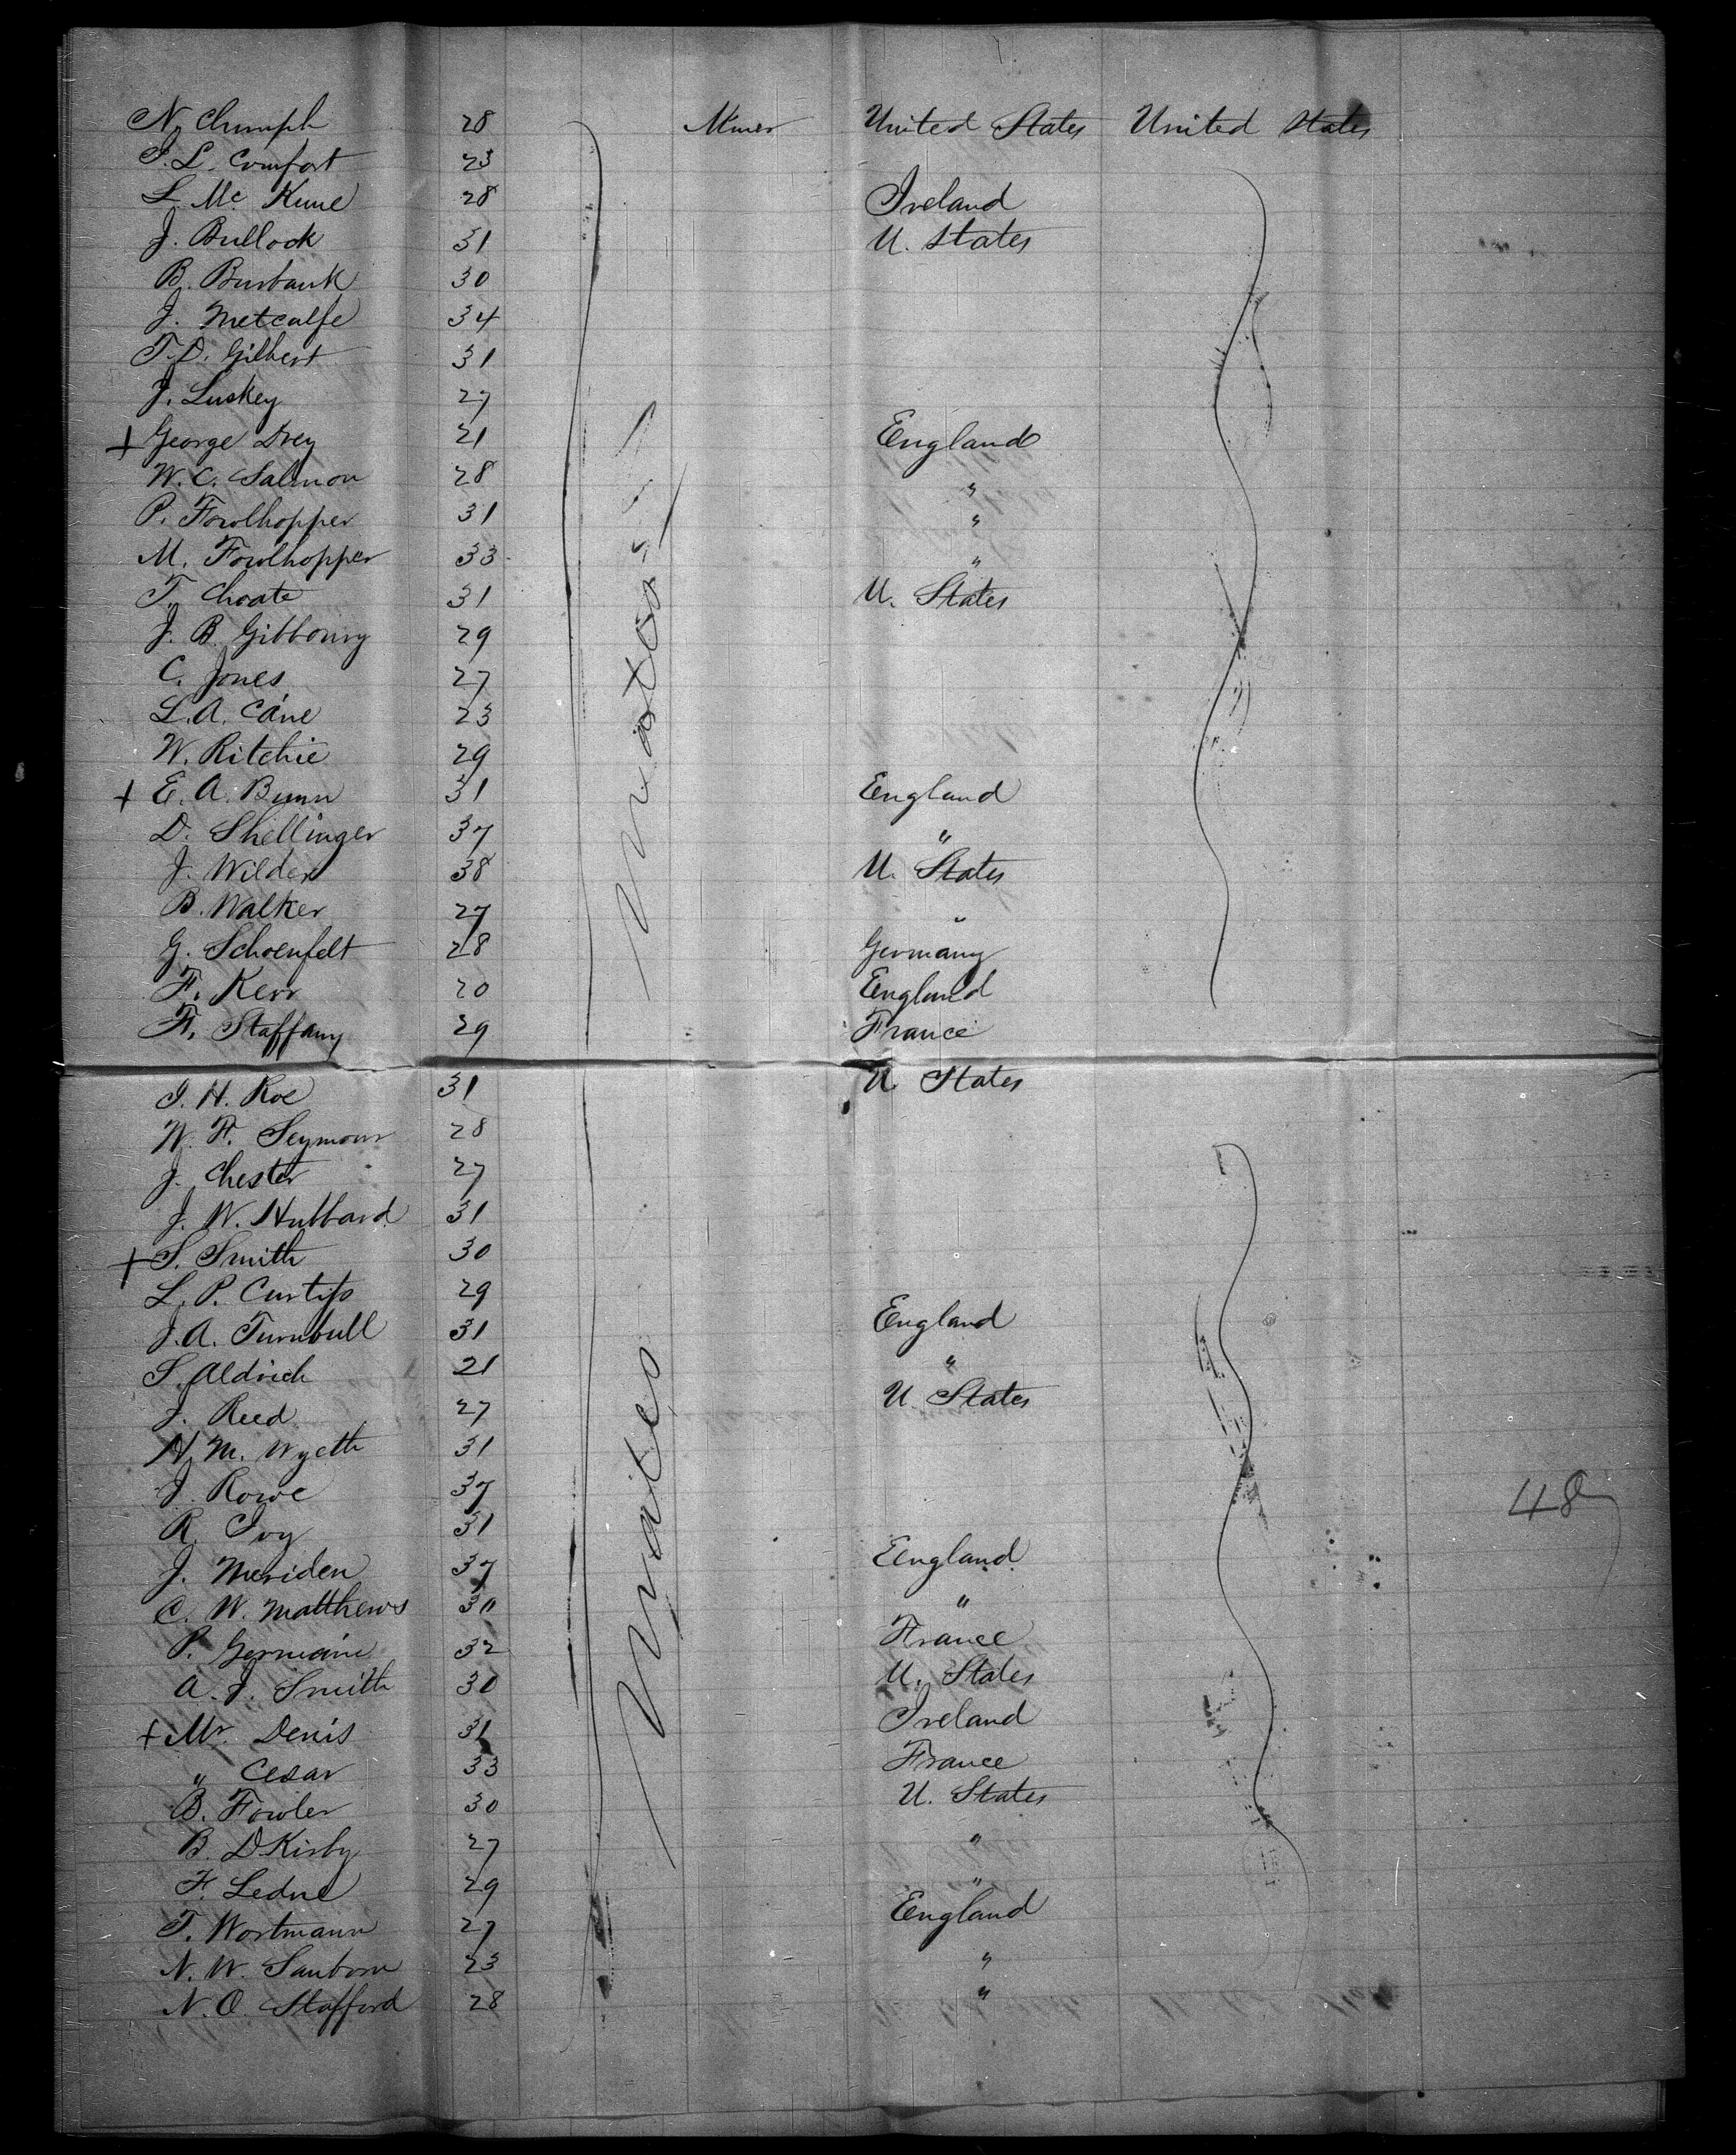 N. Chumph 28 Miner United States United States
J. L. Comfort 23
L. Mc Kune 28 Ireland
J. Bullock 31 U. States
B. Burbank 30
J. Metcalfe 34
T. D. Gilbert 31
J. Luskey 27
+ George Drey 21 England
W. C. Salmon 28 "
P. Fowlhopper 31 "
M. Fowlhopper 33 "
T. Choate 31 U. States
J. B. Gibbony 29
C. Jones 27
L. A. Cane 23
W. Ritchie 29
+ E. A. Bunn 31 England
D. Shellinger 37 "
J. Wilder 38 U. States
B. Walker 27 "
G. Schoenfelt 28 Germany
F. Kerr 20 England
F. Staffany 29 France
J. H. Roe 31 U States
W. F. Seymour 28
J. Chester 27
J. W. Hubbard 31
+ S. Smith 30
L. P. Curtiss 29
J. A. Turnbull 31 England
S. Aldrich 21 "
J. Reed 27 U States
H. M. Wyeth 31
J. Rowe 37
R. Ivy 31
J. Meriden 37 England
C. W. Matthews 30 "
P. Germaine 32 France
A. J. Smith 30 U. States
+ Mr. Denis 31 Ireland
" Cesar 33 France
B. Fowler 30 U. States
B. D Kirby 27 "
F. Ledue 29 "
T. Wortmann 27 England
N. W. Sanborn 23 "
N. O. Stafford 28 "
48